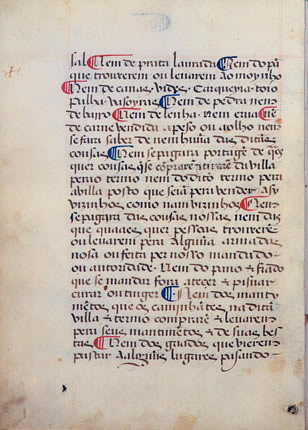 sal ¶ Nem de prata laurada ¶ Nem do pã
que trouxerem ou leuarem ao moynho
¶ Nem de canas vides carqueyia tojo
palha vasoyras ¶ Nem de pedra nem
de barro ¶ Nem de lenha nem erua ¶ Nẽ
de carne vendida a peso ou a olho nem
se fara saber de nenhũua das ditas
cousas ¶ Nem se pagara portagẽ de q̃es
quer cousas que se cõprarẽ e tirarẽ da villa
pera o termo nem do dito termo pera
a villa posto que seia pera vender asy
vizinhos como nam vizinhos ¶ Nem
se pagara das cousas nossas nem das
que quaaes quer pessoas trouxerem
ou leuarem pera alguũa armada
nosa ou feita per nosso mandado
ou autoridade Nem do pano e fiado
que se mandar fora a teçer e pisoar
curar ou tinger ¶ Nem dos mãty
mẽtos que os caminhãtes na dita
villa e termo comprarẽ e leuarem
pera seus mantimẽtos e de suas bes
tas ¶ Nem dos guados que vierem
pastar a alguũs lugares pasando